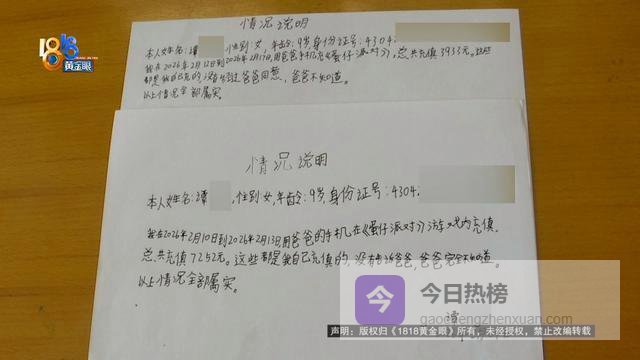 1818
黄金眼
情况说明
本人姓名:谭 性别女,年龄:9岁,身份证号:4304.
我在2026年2月12日到2026年2月17日,用爸爸手机充《蛋仔派对》,总共充值3933元.这些
都是我自己充的,没有经过爸爸同意,爸爸不知道。
以上情况全部属实。
情况说明
本人姓名:谭 ,性别女,年龄:9岁,身份证号:4304.
我在2026年2月10日到2026年2月13日用爸爸的手机在《蛋仔派对》游戏内充值,
总共充值7252元。这些都是我自己充值的,没有告诉爸爸,爸爸完全不知道。
以上情况全部属实。
谭
今日热榜
gaochengzhenxuan.com
声明:版权归《1818黄金眼》所有,未经授权,禁止改编转载